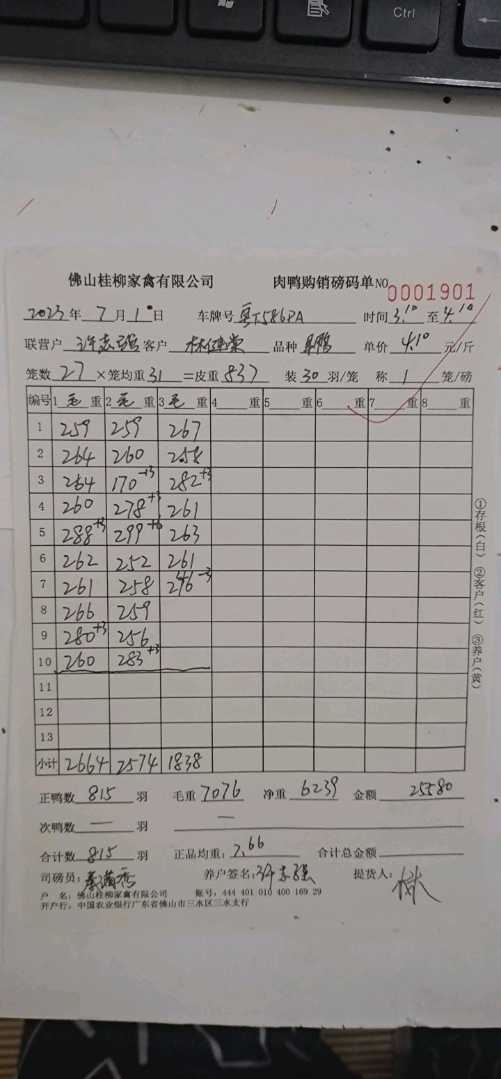 Ctrl
佛山桂柳家禽有限公司 肉鸭购销磅码单 NO 0001901
2023年 7月 1日 车牌号 粤T586PA 时间 3.10 至 4.10
联营户 许志强 客户 林健荣 品种 单价 4.10 元/斤
笼数 27 ×笼均重 31 =皮重 837 装 30 羽/笼 称 1 笼/磅
编号 1 毛 重 2 毛 重 3 毛 重 4 重 5 重 6 重 7 重 8 重
1 259 259 267
2 264 260 258
3 264 170 -13 282 +3
4 260 278 +3 261
5 288 +3 299 +6 263
6 262 252 261
7 261 258 246 -3
8 266 259
9 280 +3 256
10 260 283 +3
11
12
13
小计 2664 2574 1838
①存根(白) ②客户(红) ③养户(黄)
正鸭数 815 羽 毛重 7076 净重 6239 金额 25580
次鸭数 — 羽 —
合计数 815 羽 正品均重: 7.66 合计总金额
司磅员: 养户签名: 许志强 提货人: 林
户 名: 佛山桂柳家禽有限公司 账号: 444 401 010 400 169 29
开户行: 中国农业银行广东省佛山市三水区三水支行